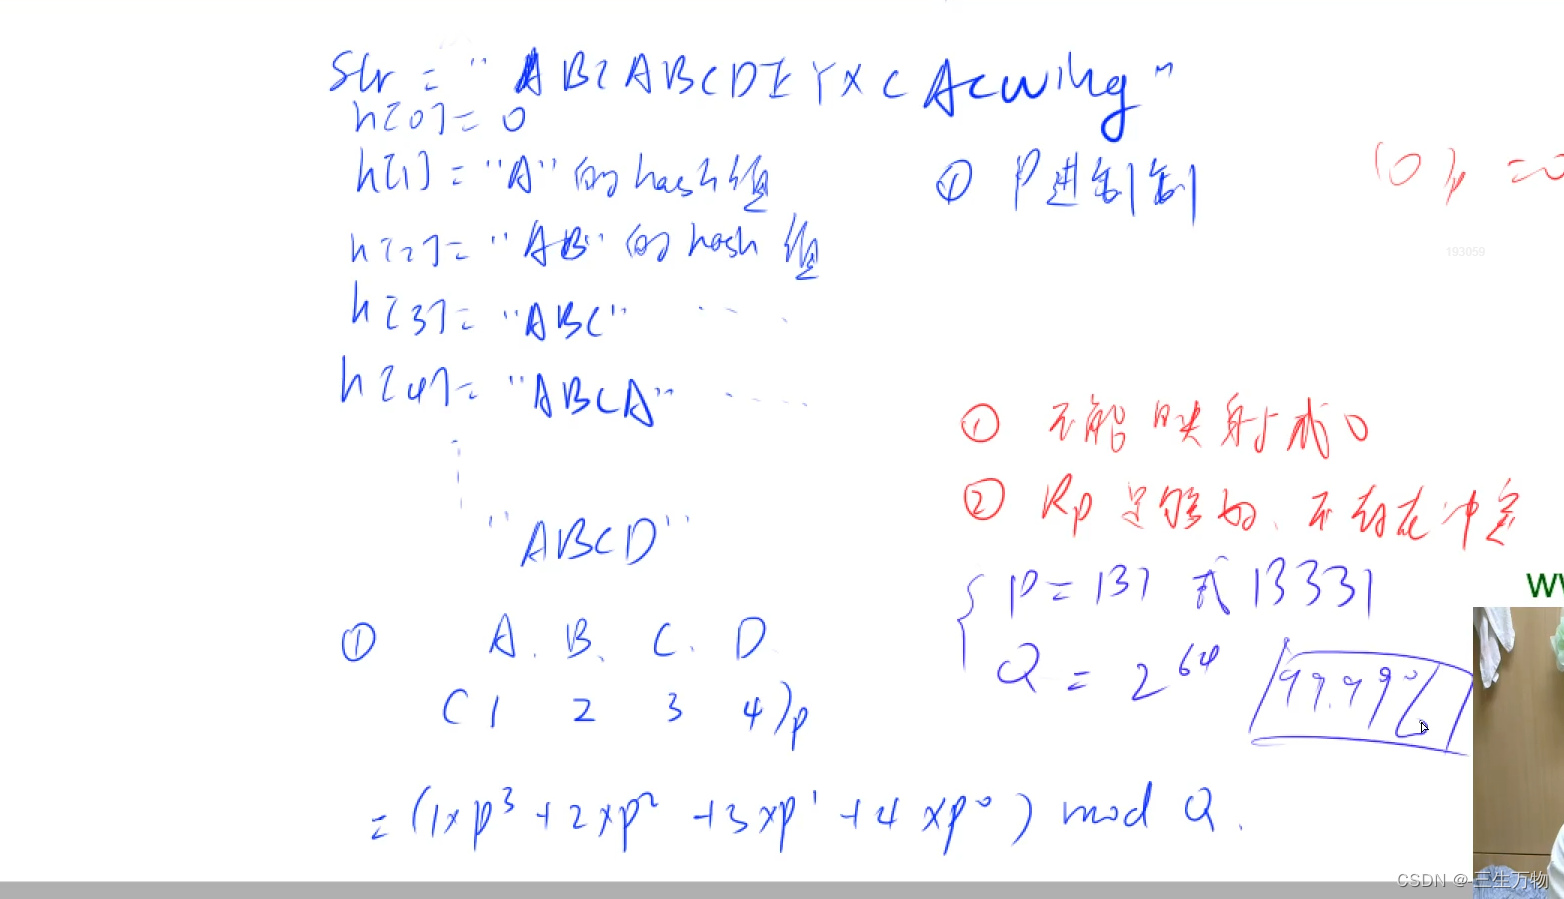 Str = "ABCABCDEYXCAcwing"
h[0] = 0
h[1] = "A" 的 hash 值
h[2] = "AB" 的 hash 值
h[3] = "ABC" ....
h[4] = "ABCA" ....
"ABCD"
① A. B. C. D
(1 2 3 4)p
= (1×p³ + 2×p² + 3×p¹ + 4×p⁰) mod Q.
① P进制
(0)p = 0
193059
① 不能映射成0
② Rp足够好、不存在冲突
{ P = 131 或 13331
Q = 2^64
99.99%
W
CSDN @-三生万物